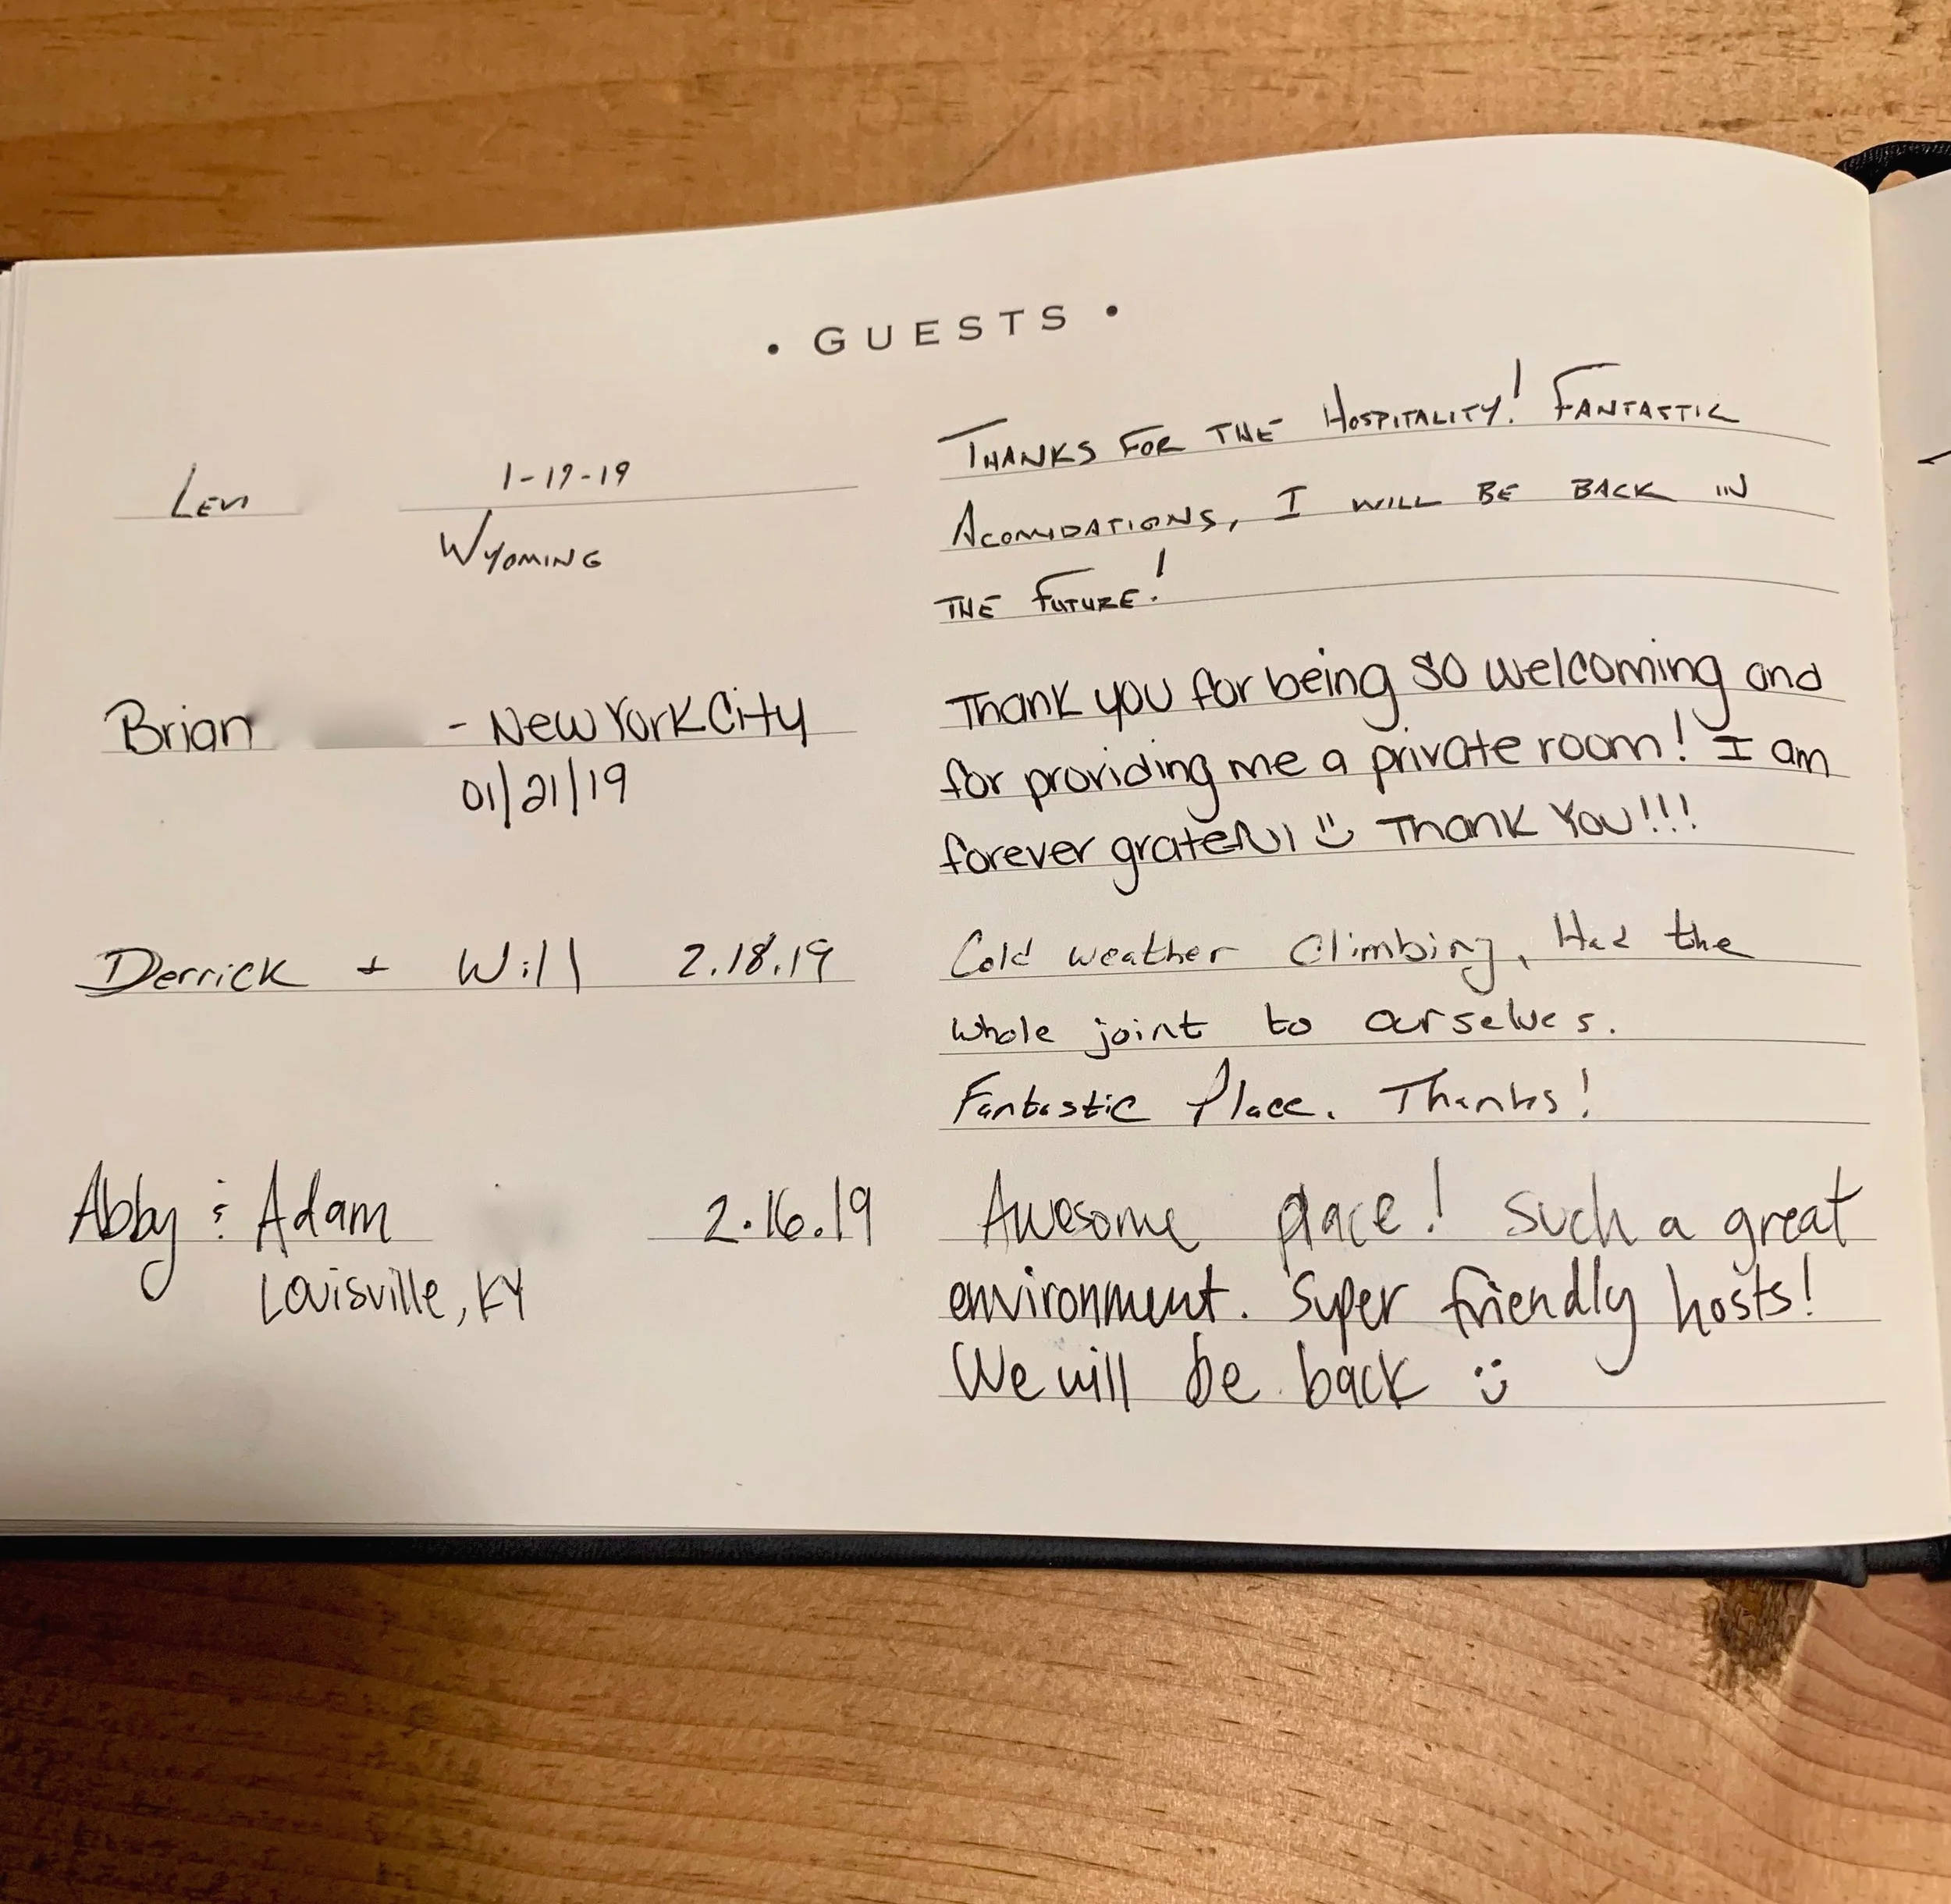 • GUESTS •
Levi 1-17-19
Wyoming
Thanks for the Hospitality! Fantastic
Acomidations, I will be back in
the Future!
Brian - New York City
01/21/19
Thank you for being so welcoming and
for providing me a private room! I am
forever grateful :) Thank You!!!
Derrick + Will 2.18.19
Cold weather Climbing, Had the
whole joint to ourselves.
Fantastic Place. Thanks!
Abby & Adam 2.16.19
Louisville, KY
Awesome place! Such a great
environment. Super friendly hosts!
We will be back :)